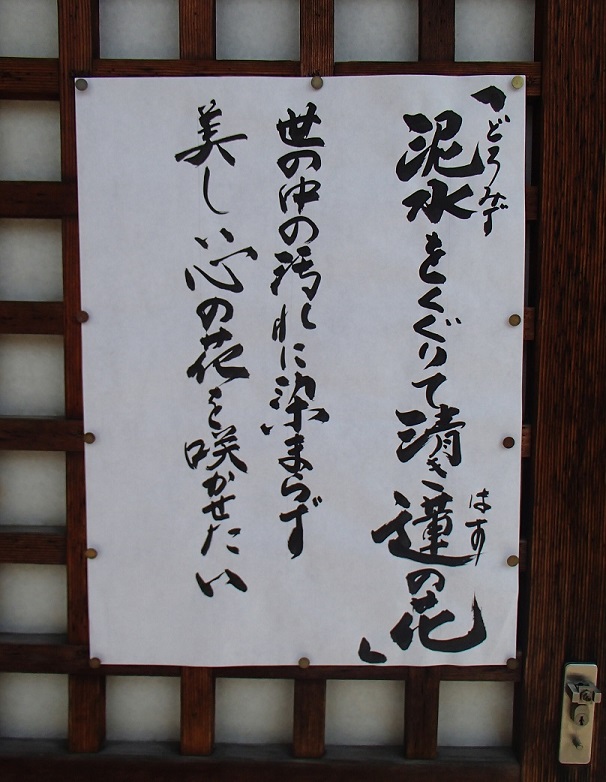 「泥水をくぐりて清き蓮の花」
どろみず
はす
世の中の汚れに染まらず
美しい心の花を咲かせたい